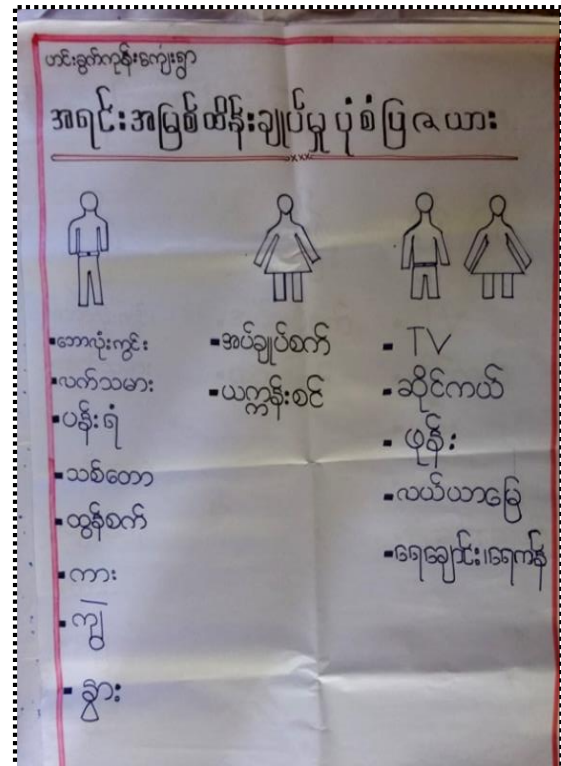 ဟင်းခွက်ကုန်းကျေးရွာ
အရင်းအမြစ်ထိန်းချုပ်မှု ပုံစံပြဇယား
xxx
-ဘောလုံးကွင်း
-လက်သမား
-ပန်းရံ
-သစ်တော
-ထွန်စက်
-ကား
-ကျွဲ
-နွား
-အပ်ချုပ်စက်
-ယက္ကန်းစင်
- TV
-ဆိုင်ကယ်
- ဖုန်း
-လယ်ယာမြေ
-ရေချောင်း၊ရေကန်